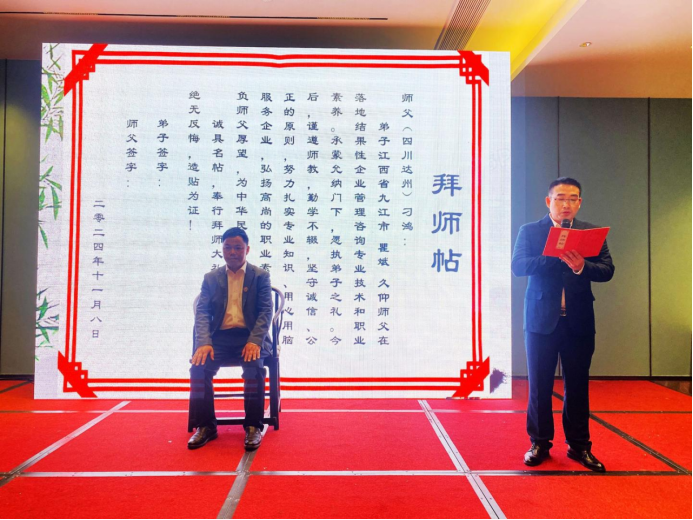 拜师帖
师父（四川达州）刁鸿：
弟子江西省九江市 瞿斌 久仰师父在
落地结果性企业管理咨询专业技术和职业
素养。承蒙允纳门下，愿执弟子之礼。今
后，谨遵师教，勤学不辍，坚守诚信、公
正的原则，努力扎实专业知识、用心用脑
服务企业，弘扬高尚的职业素
负师父厚望，为中华民
诚具名帖，奉行拜师大礼
绝无反悔，造贴为证！
弟子签字：
师父签字：
二零二四年十一月八日